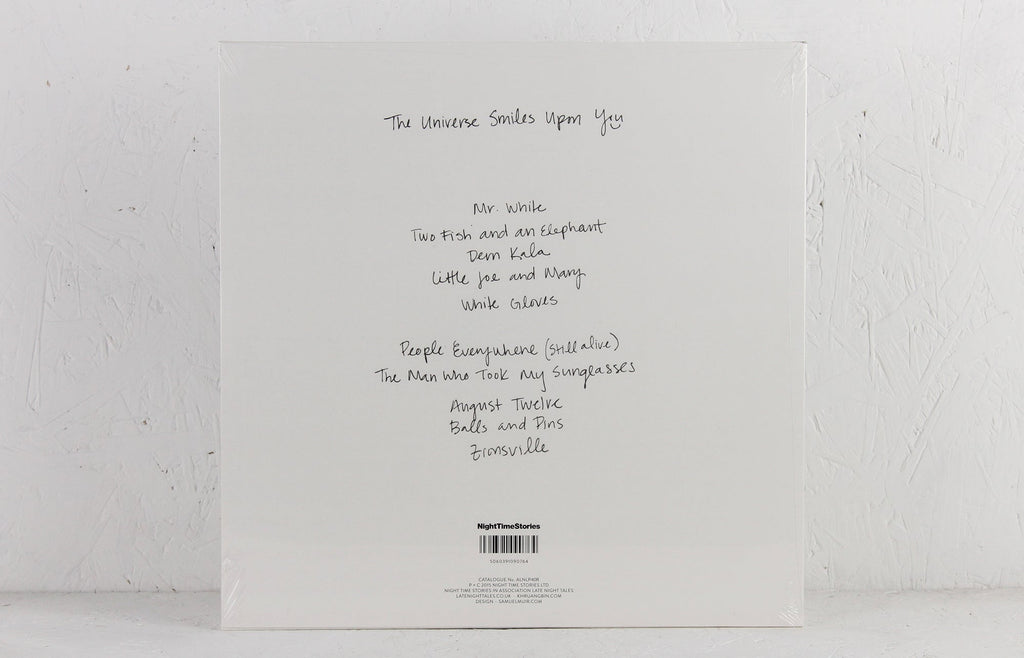 The Universe Smiles Upon You
Mr. White
Two Fish and an Elephant
Dern Kala
Little Joe and Mary
White Gloves
People Everywhere (Still alive)
The Man Who Took My Sunglasses
August Twelve
Balls and Pins
Zionsville
NightTimeStories
5060391090764
CATALOGUE No. ALNLP40R
P + C 2015 NIGHT TIME STORIES LTD.
NIGHT TIME STORIES IN ASSOCIATION LATE NIGHT TALES
LATENIGHTTALES.CO.UK - KHRUANGBIN.COM
DESIGN - SAMUELMUIR.COM